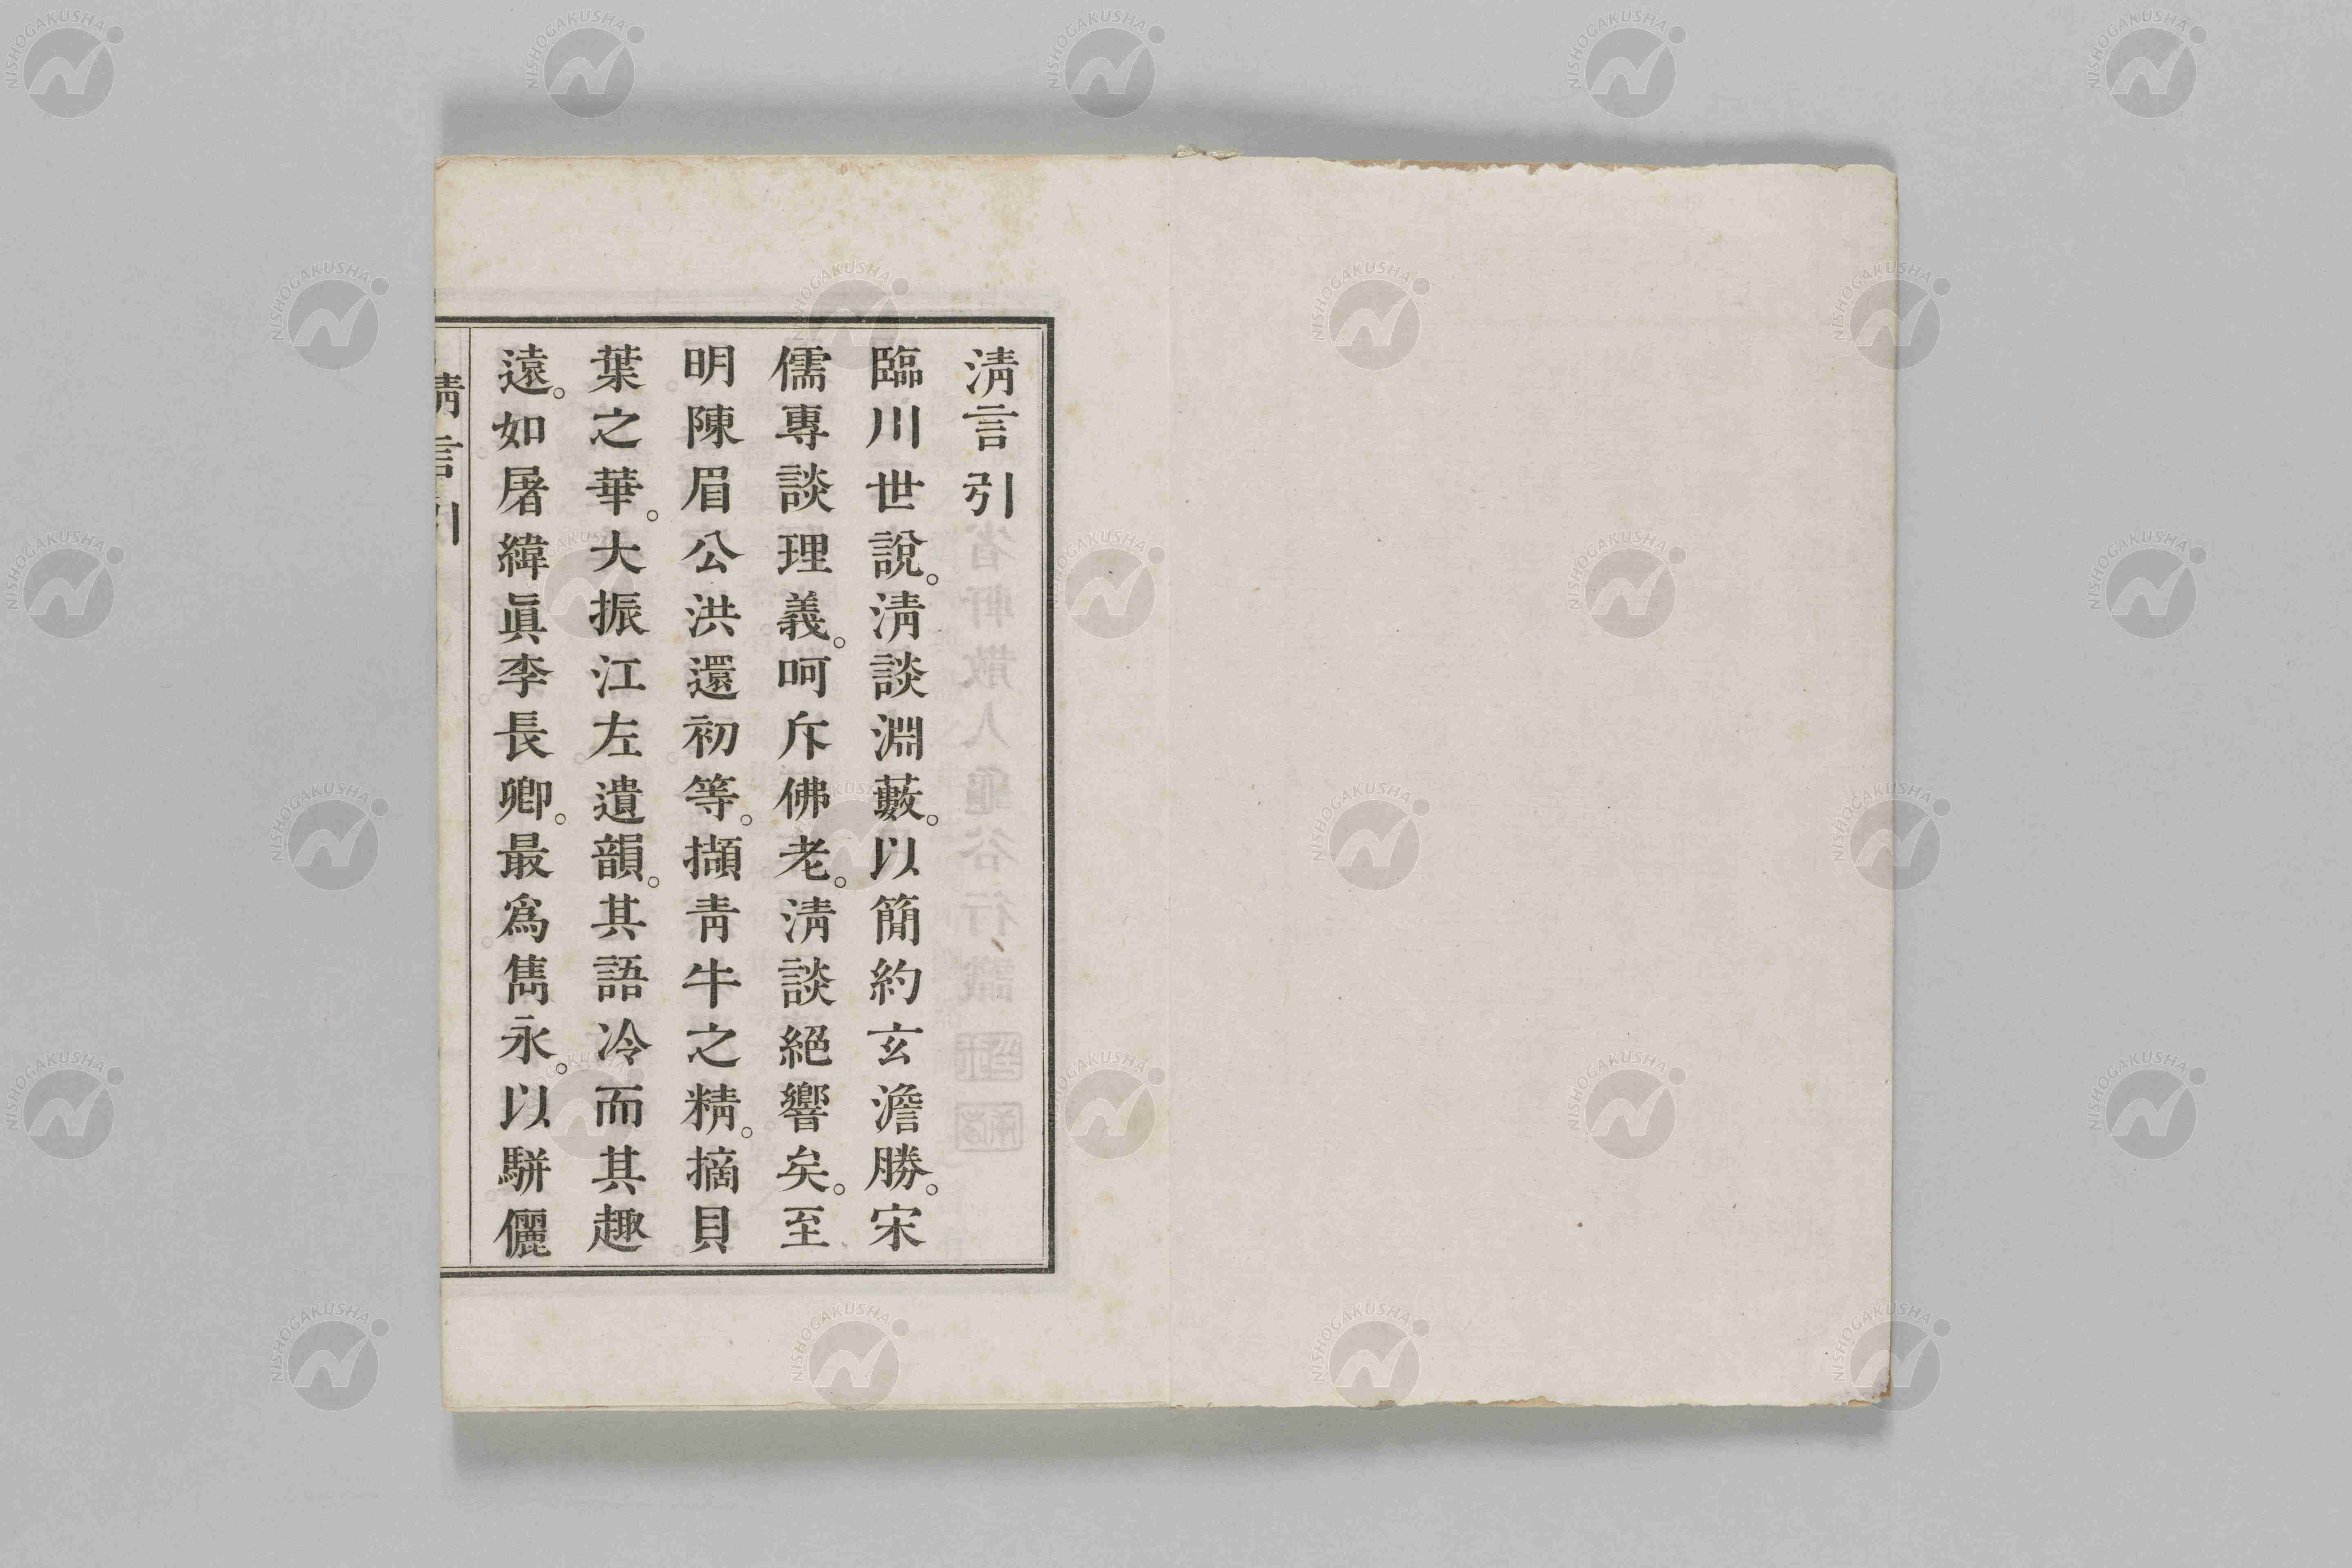 淸言引
臨川世說。淸談淵藪。以簡約玄澹勝。宋
儒專談理義。呵斥佛老。淸談絕響矣。至
明陳眉公洪還初等。擷靑牛之精。摘貝
葉之華。大振江左遺韻。其語冷而其趣
遠。如屠緯眞李長卿。最爲雋永。以駢儷
淸言引
NISHOGAKUSHA